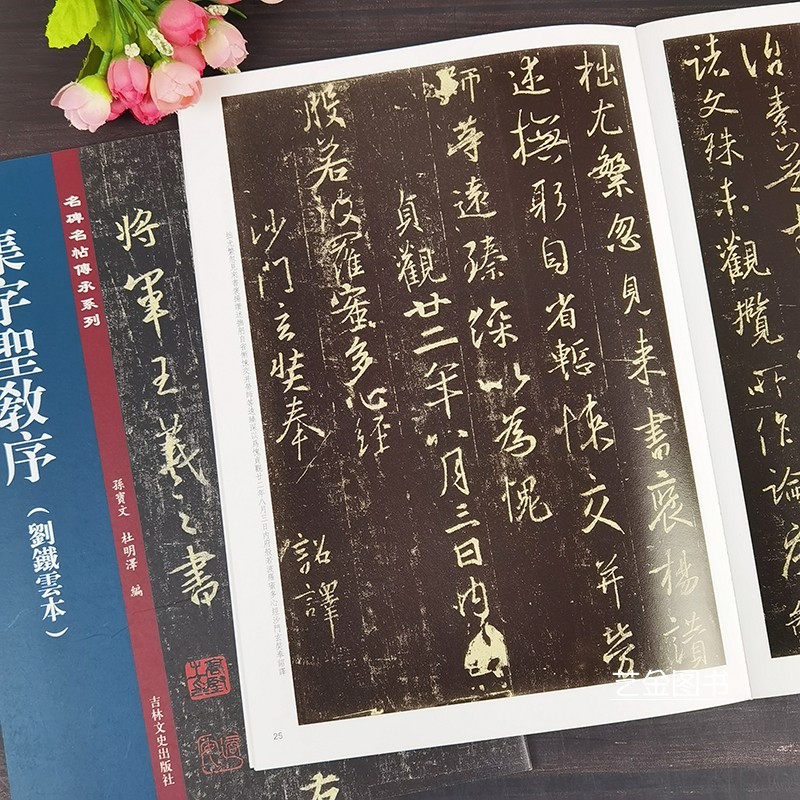 治素無
諸文殊未觀攬所作論序鄙
拙尤繁忽見来書褒揚讚
述撫躬自省慙悚交并勞
師等遠臻深以為愧
貞觀廿二年八月三日內
般若波羅蜜多心經
沙門玄奘奉 詔譯
25
名碑名帖傳承系列
集字聖教序
(劉鐵雲本)
將軍王羲之書
孫寶文 杜明澤 編
吉林文史出版社
艺金图书